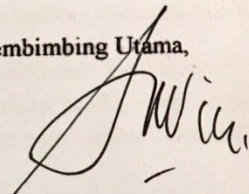 embimbing Utama,